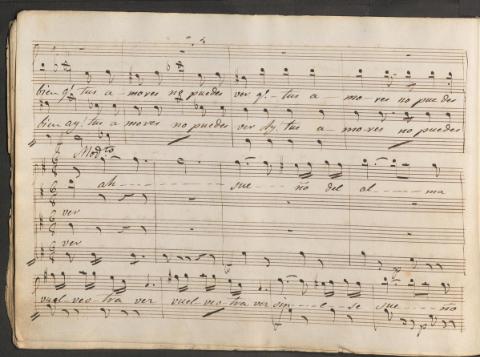 bien q.e tus a-mores no puedes ver q.e-tus a- mo-res no puedes
bien ay! tus a-mores no puedes ver Ay, tus a-mores no puedes
Mod.to
ah - - - sue - - - ño del al - - ma
ver
ver
vuel ves tra ver vuel ves tra ver sin - - e - - se sue - - ño